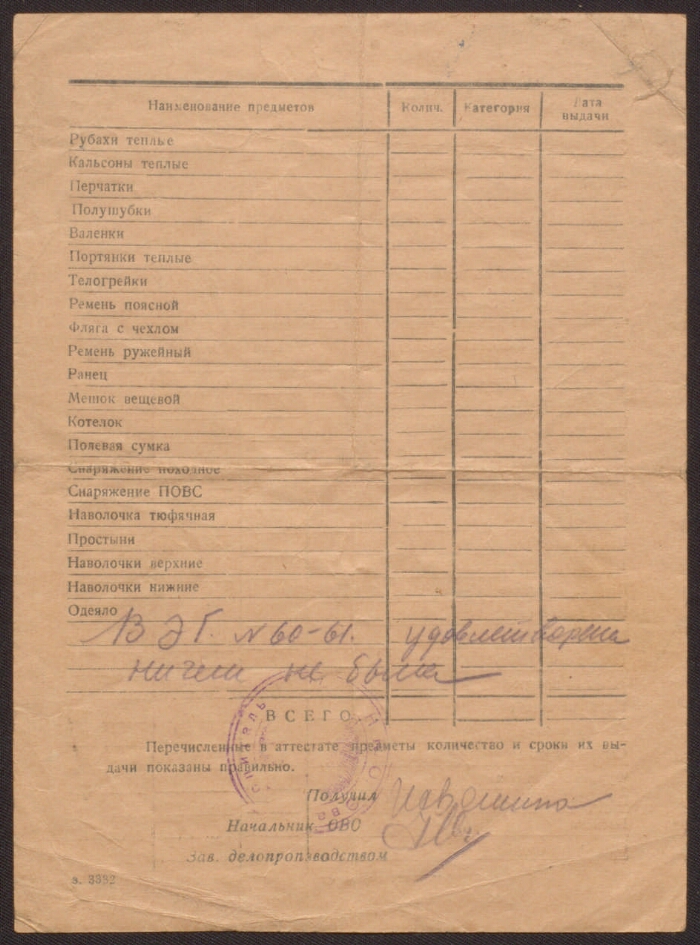 Наименование предметов Колич. Категория Дата выдачи
Рубахи теплые
Кальсоны теплые
Перчатки
Полушубки
Валенки
Портянки теплые
Телогрейки
Ремень поясной
Фляга с чехлом
Ремень ружейный
Ранец
Мешок вещевой
Котелок
Полевая сумка
Снаряжение походное
Снаряжение ПОВС
Наволочка тюфячная
Простыни
Наволочки верхние
Наволочки нижние
Одеяло
В ЭГ. №60-61. удовлетворена
ничем не была
ВСЕГО
Перечисленные в аттестате предметы количество и сроки их вы-
дачи показаны правильно.
Получил
Начальник ОВС
Зав. делопроизводством
з. 3352